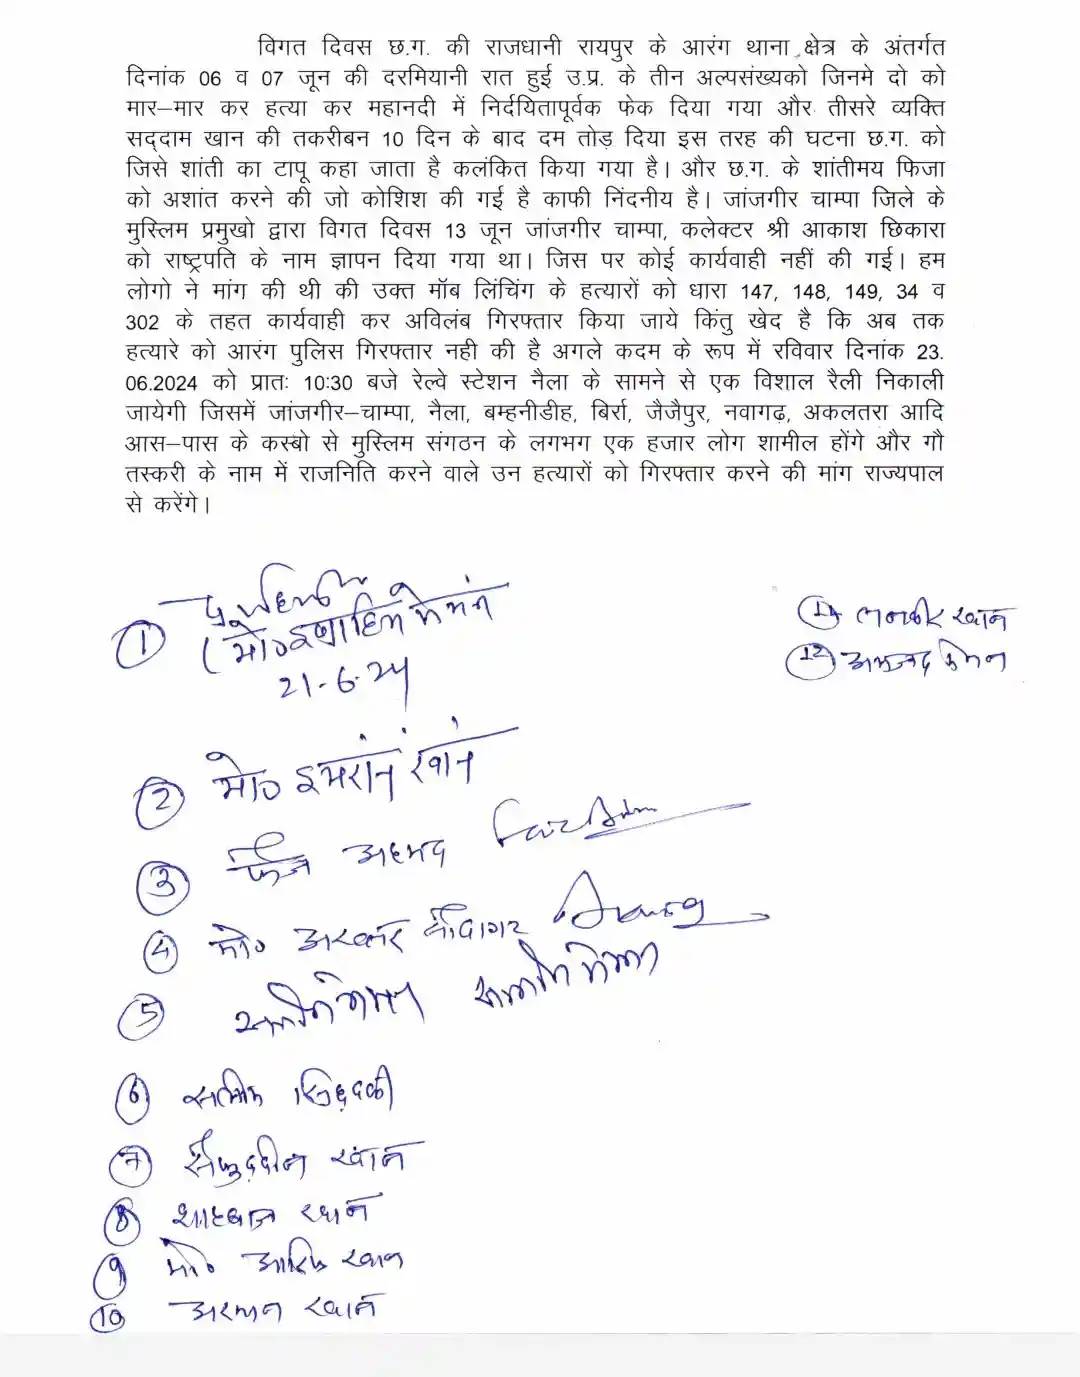 विगत दिवस छ.ग. की राजधानी रायपुर के आरंग थाना क्षेत्र के अंतर्गत
दिनांक 06 व 07 जून की दरमियानी रात हुई उ.प्र. के तीन अल्पसंख्यको जिनमे दो को
मार–मार कर हत्या कर महानदी में निर्दयितापूर्वक फेक दिया गया और तीसरे व्यक्ति
सद्दाम खान की तकरीबन 10 दिन के बाद दम तोड़ दिया इस तरह की घटना छ.ग. को
जिसे शांती का टापू कहा जाता है कलंकित किया गया है। और छ.ग. के शांतीमय फिजा
को अशांत करने की जो कोशिश की गई है काफी निंदनीय है। जांजगीर चाम्पा जिले के
मुस्लिम प्रमुखो द्वारा विगत दिवस 13 जून जांजगीर चाम्पा, कलेक्टर श्री आकाश छिकारा
को राष्ट्रपति के नाम ज्ञापन दिया गया था। जिस पर कोई कार्यवाही नहीं की गई। हम
लोगो ने मांग की थी की उक्त मॉब लिंचिंग के हत्यारों को धारा 147, 148, 149, 34 व
302 के तहत कार्यवाही कर अविलंब गिरफ्तार किया जाये किंतु खेद है कि अब तक
हत्यारे को आरंग पुलिस गिरफ्तार नही की है अगले कदम के रूप में रविवार दिनांक 23.
06.2024 को प्रातः 10:30 बजे रेल्वे स्टेशन नैला के सामने से एक विशाल रैली निकाली
जायेगी जिसमें जांजगीर–चाम्पा, नैला, बम्हनीडीह, बिर्रा, जैजैपुर, नवागढ़, अकलतरा आदि
आस–पास के कस्बो से मुस्लिम संगठन के लगभग एक हजार लोग शामील होंगे और गौ
तस्करी के नाम में राजनिति करने वाले उन हत्यारों को गिरफ्तार करने की मांग राज्यपाल
से करेंगे।
① (मो० इब्राहिम मेमन
21-6-24
⑪ खान
⑫ अमजद
② मो० इमरान खान
③ फैज अहमद
④ मो०
⑤
⑥ सिद्दकी
⑦ सैफुद्दीन खान
⑧ शाहबाज खान
⑨ मो० आरिफ खान
⑩ अरमान खान